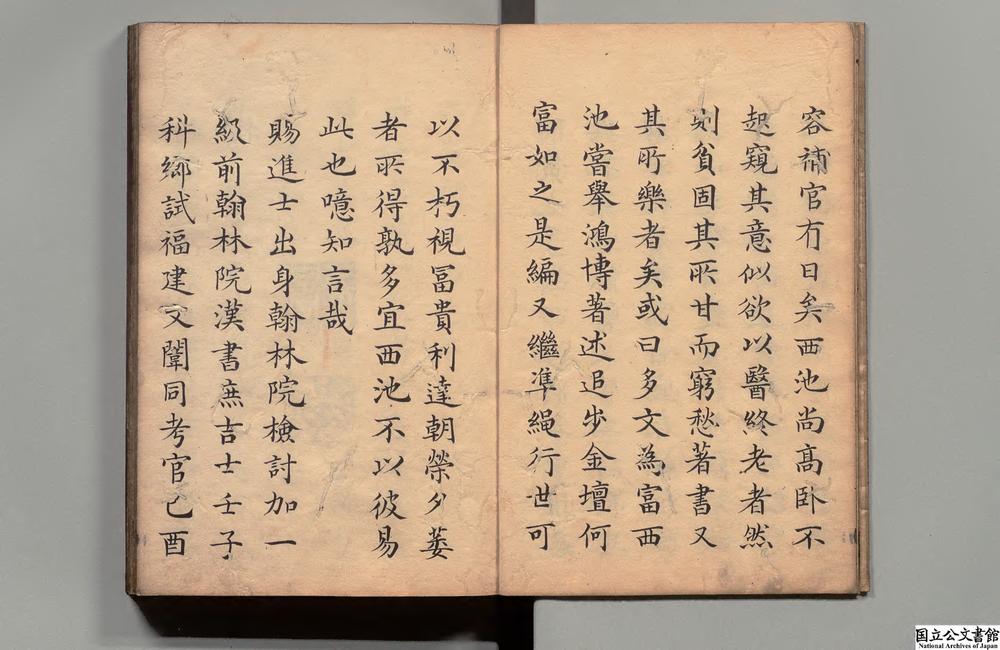 容補官有日矣西池尚髙卧不
起窺其意似欲以醫終老者然
則貧固其所甘而窮愁著書又
其所樂者矣或曰多文為富西
池嘗舉鴻博著述追步金壇何
富如之是編又繼準繩行世可
以不朽視冨貴利達朝榮夕萎
者所得孰多宜西池不以彼易
此也噫知言哉
賜進士出身翰林院檢討加一
級前翰林院漢書庶吉士壬子
科鄉試福建文闈同考官己酉
国立公文書館
National Archives of Japan